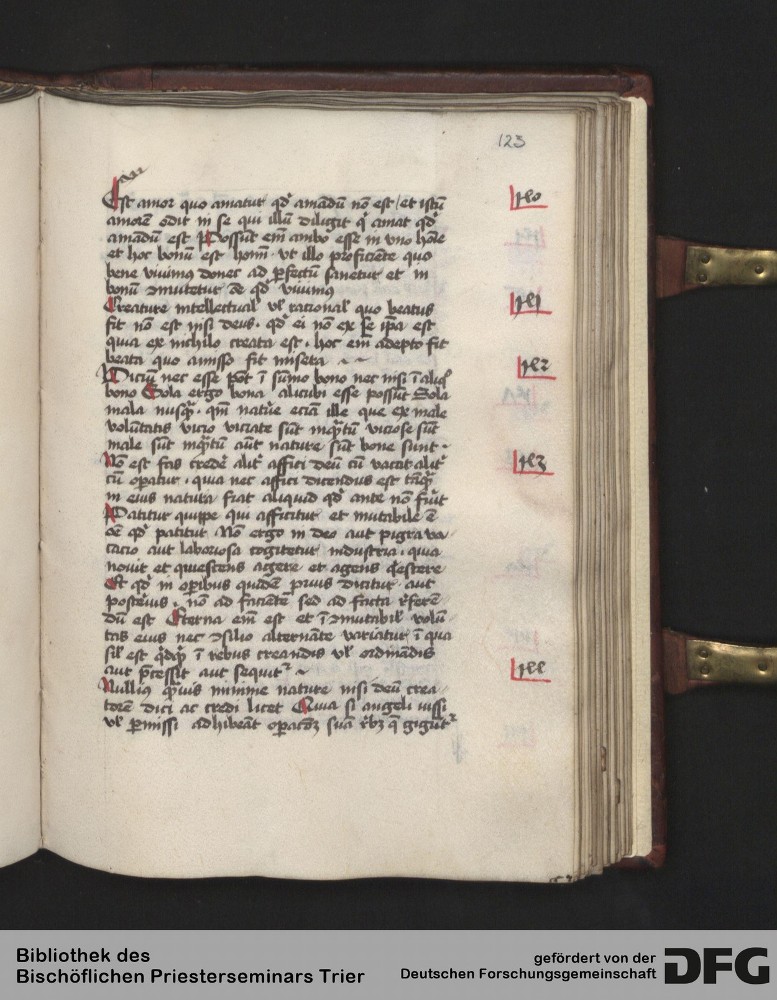 123
Est amor quo amatur qd' amādū nō est / et istū
amorē odit in se qui illū diligit q' amat qd'
amādū est Possūt em̄ ambo esse in vno hoīe
et hoc bonū est hoīn· vt illo proficiēte quo
bene viuimus donec ad perfectū sanetur et in
bonū ɔmutetur ōe qd' viuimus
Creature intellectual' vl' racional' quo beatus
fit nō est nisi deus· qd' ei nō ex se ip̄a est
quia ex nichilo creata est· hoc em̄ adepto fit
beata quo amisso fit misera ~ ~
Viciū nec esse pōt ī sūmo bono nec nisi ī aliq°
bono Sola ergo bona alicubi esse possūt Sola
mala nusq̄· qm̄ natūe eciā ille que ex male
volūtatis vicio viciate sūt inq̄tū viciose sūt
male sūt inq̄tū aūt nature sūt bone sunt·
Nō est fas crede' alit' affici deū cū vacat alit'
cū opatur· quia nec affici dicendus est tāq̄
in eius natura fiat aliquid qd' ante nō fūit
Patitur quippe qui afficitur et mutabile ē
oē qd' patitur Nō ergo in deo aut pigra va-
cacio aut laboriosa cogitetur industria· quia
nouit et quiescens agere et agens q̄escere
Et qd' in opibus quidē prius dicitur aut
posterius· nō ad faciētē sed ad facta r'ferē-
dū est Eterna em̄ est et īɔmutabil' volū-
tas eius nec ɔsilio alternāte variatur ī qua
sil' est q̄dq̄ ī rebus creandis vl' ordinādis
aut p̄cessit aut sequit' ~
Nullius q̄uis minime nature nisi deū crea-
torē dici ac credi licet Quia si angeli iussi
vl' p̄missi adhibeāt opacōꝫ suā r'bꝫ q̄ gigūt'
xlo
xl1
xl2
xl3
Bibliothek des
Bischöflichen Priesterseminars Trier
gefördert von der
Deutschen Forschungsgemeinschaft
DFG